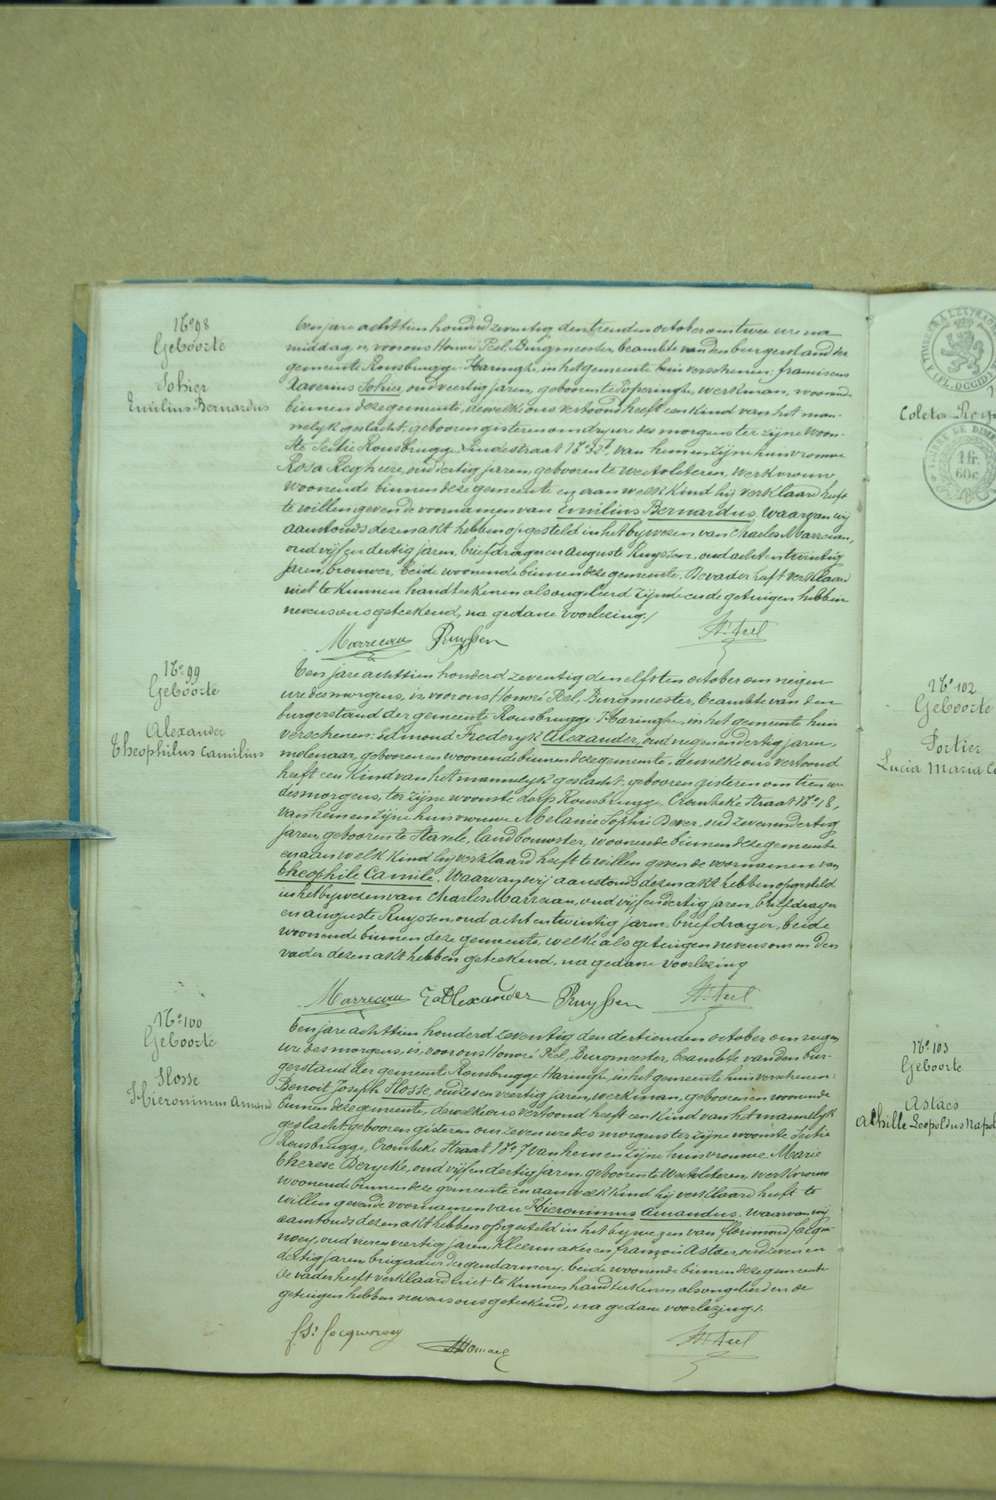 N° 98
Geboorte
Sohier
Emilius Bernardus
Ten jare achttien honderd zeventig den tienden october om twee ure na
middag, is, voor ons Honoré Peel, Burgmeester, beambte van den burgerstand der
gemeente Rousbrugge-Haringhe, in het gemeente huis verschenen: franciscus
Xaverius Sohier, oud veertig jaren, geboren te Poperinghe, werkman, woonende
binnen deze gemeente, dewelke ons vertoond heeft een kind van het man-
nelijk geslacht, geboren gisteren om dry ure des morgens ter zijne woon-
ste Sectie Rousbrugge, Lindestraat N° 32, van hem en zijne huisvrouwe
Rosa Reghere, oud dertig jaren, geboren te Westvleteren, werkvrouw
woonende binnen deze gemeente en aan welk kind hij verklaard heeft
te willen geven de voornamen van Emilius Bernardus, waarvan wij
aanstonds dezen akt hebben opgesteld in het bijwezen van Charles Marreeau,
oud vijf en dertig jaren, briefdrager en Auguste Ruyssen, oud acht en twintig
jaren, brouwer, beide woonende binnen deze gemeente. De vader heeft verklaard
niet te kunnen handteekenen als ongeleerd zijnde en de getuigen hebben
nevens ons geteekend, na gedane voorlezing./
Marreeau Ruyssen H. Peel
N° 99
Geboorte
Alexander
Theophilus Camilius
Ten jare achttien honderd zeventig den elfsten october om negen
ure des morgens, is, voor ons Honoré Peel, Burgmeester, beambte van den
burgerstand der gemeente Rousbrugge-Haringhe, in het gemeente huis
verschenen: Edmond Frederyk Alexander, oud negen en dertig jaren,
molenaar, geboren en woonende binnen deze gemeente, dewelke ons vertoond
heeft een kind van het mannelyk geslacht, geboren gisteren om tien ure
des morgens, ter zijne woonste dorp Rousbrugge, Crombeke Straat N° 18,
van hem en zijne huisvrouwe Melanie Sophie Dever, oud zeven en dertig
jaren, geboren te Stavele, landbouwster, woonende binnen deze gemeente
en aan welk kind hij verklaard heeft te willen geven de voornamen van
Theophile Camile. Waarvan wij aanstonds dezen akt hebben opgesteld
in het bijwezen van Charles Marreeau, oud vijf en dertig jaren, briefdrager
en auguste Ruyssen, oud acht en twintig jaren, briefdrager, beide
woonende binnen deze gemeente, welke als getuigen nevens ons en den
vader dezen akt hebben geteekend, na gedane voorlezing
Marreeau E. Alexander Ruyssen H. Peel
N° 100
Geboorte
Hosse
Hieronimus Amand
Ten jare achttien honderd zeventig den dertienden october om negen
ure des morgens, is, voor ons Honoré Peel, Burgmeester, beambte van den bur-
gerstand der gemeente Rousbrugge-Haringhe, in het gemeente huis verschenen:
Benoit Joseph Hosse, oud zes en veertig jaren, werkman, geboren en woonende
binnen deze gemeente, dewelke ons vertoond heeft een kind van het mannelyk
geslacht, geboren gisteren om zeven ure des morgens ter zijne woonste Sectie
Rousbrugge, Crombeke Straat N° 7 van hem en zijne huisvrouwe Marie
Therese Derycke, oud vijf en dertig jaren, geboren te Westvleteren, werkvrouw
woonende binnen deze gemeente en aan welk kind hij verklaard heeft te
willen geven de voornamen van Hieronimus Amandus. Waarvan wij
aanstonds dezen akt hebben opgesteld in het bijwezen van florimond
oud vier en veertig jaren, kleermaker en françois Astaes, oud zeven en
dertig jaren, brigadier der gendarmery, beide woonende binnen deze gemeente
De vader heeft verklaard niet te kunnen handteekenen als ongeleerd en de
getuigen hebben nevens ons geteekend, na gedane voorlezing./.
H. Peel
Coleta
1 fr.
60 c.
N° 102
Geboorte
Portier
Lucia Maria Co
N° 103
Geboorte
Astaes
Achille Leopoldus Napol